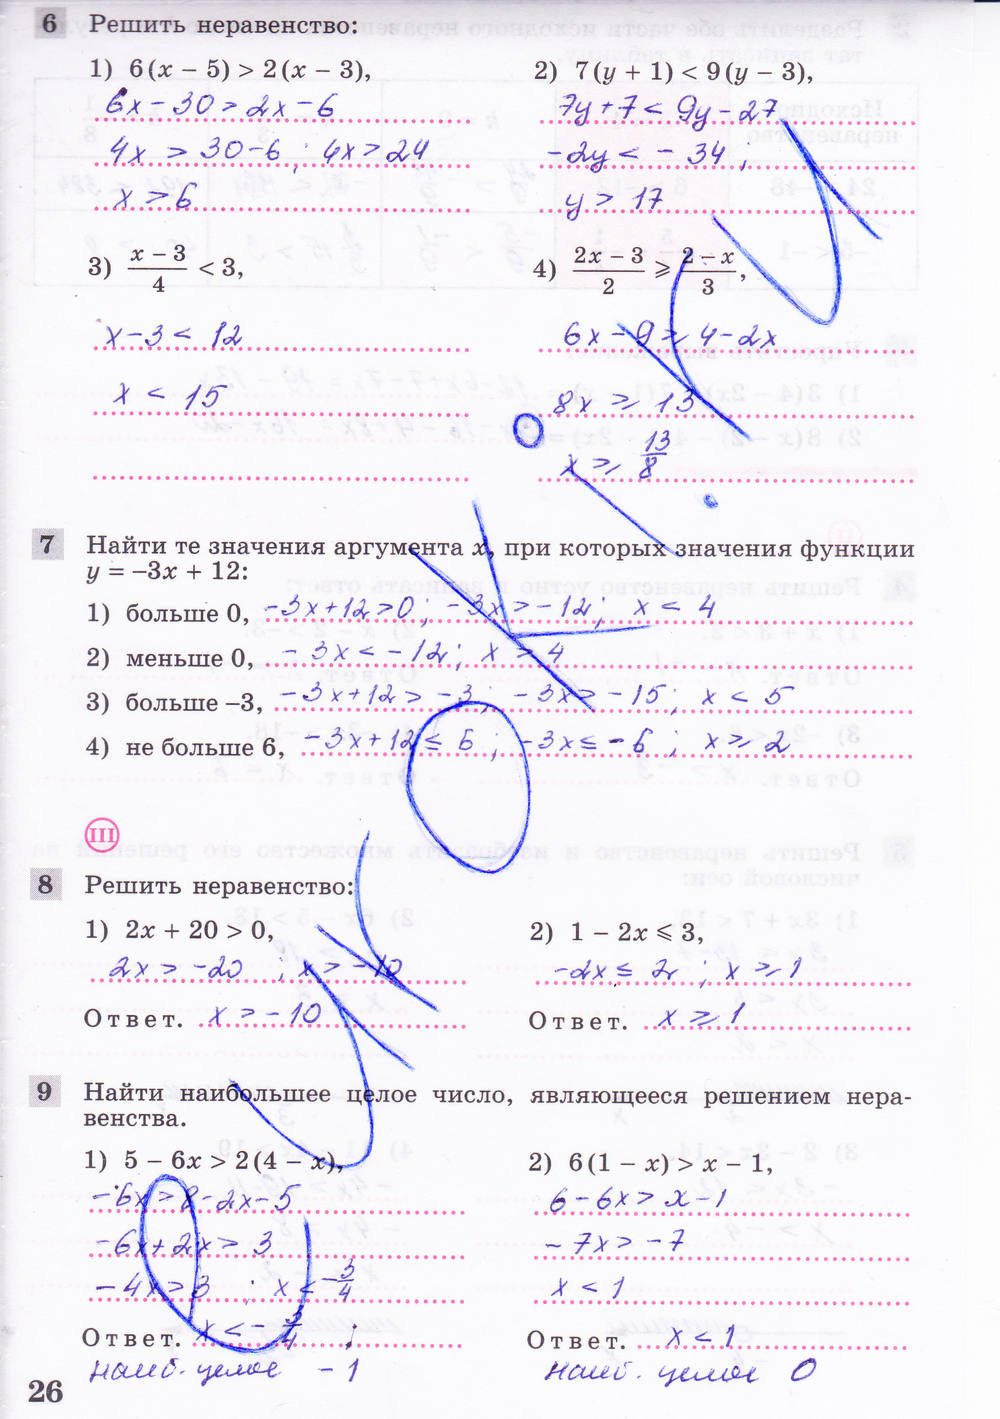 6 Решить неравенство:
1) 6(x – 5) > 2(x – 3),
6x – 30 > 2x – 6
4x > 30 – 6 ; 4x > 24
x > 6
2) 7(y + 1) < 9(y – 3),
7y + 7 < 9y – 27
–2y < – 34 ,
y > 17
3) (x – 3)/4 < 3,
x – 3 < 12
x < 15
4) (2x – 3)/2 ⩾ (2 – x)/3,
6x – 9 ⩾ 4 – 2x
8x ⩾ 13
x ⩾ 13/8
7 Найти те значения аргумента x, при которых значения функции
y = –3x + 12:
1) больше 0, –3x + 12 > 0 ; –3x > –12 ; x < 4
2) меньше 0, – 3x < – 12 ; x > 4
3) больше –3, –3x + 12 > –3 ; –3x > –15 ; x < 5
4) не больше 6, –3x + 12 ≤ 6 ; –3x ≤ –6 ; x ⩾ 2
III
8 Решить неравенство:
1) 2x + 20 > 0,
2x > –20 ; x > –10
Ответ. x > – 10
2) 1 – 2x ⩽ 3,
–2x ≤ 2 ; x ⩾ 1
Ответ. x ⩾ 1
9 Найти наибольшее целое число, являющееся решением нера-
венства.
1) 5 – 6x > 2(4 – x),
–6x > 8 – 2x – 5
–6x + 2x > 3
– 4x > 3 ; x < –3/4
Ответ. x < – 3/4 ;
наиб. целое – 1
2) 6(1 – x) > x – 1,
6 – 6x > x – 1
– 7x > – 7
x < 1
Ответ. x < 1
наиб. целое 0
26